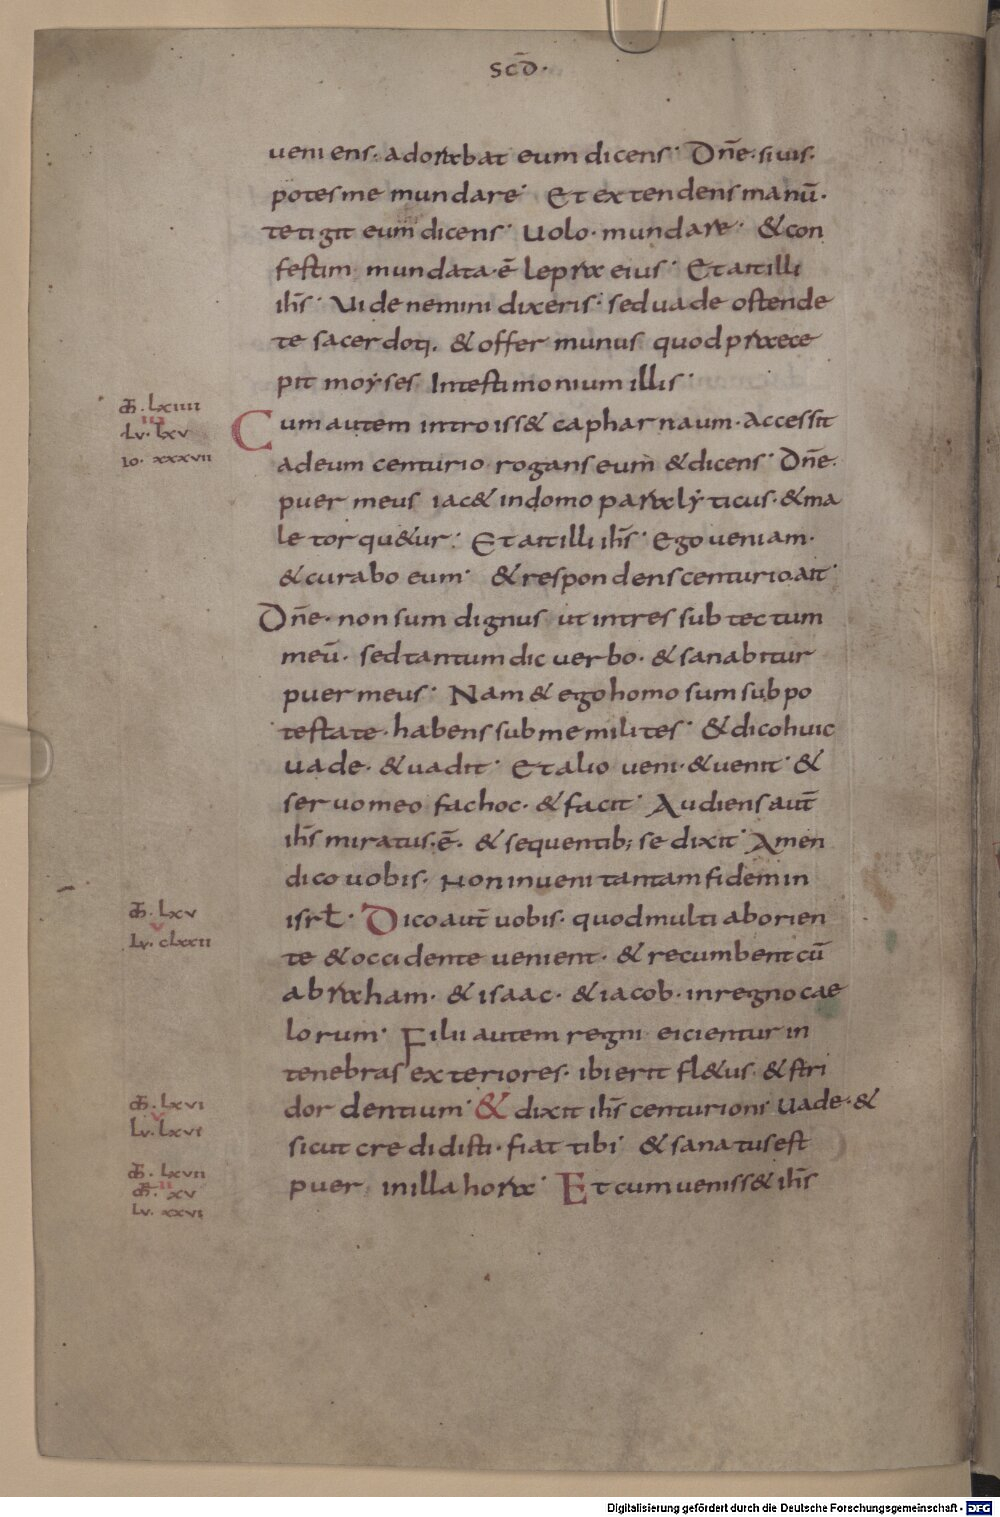 SCD̄·
ueniens· adorabat eum dicens· Dn̄e· si uis·
potes me mundare· Et extendens manū·
tetigit eum dicens· Uolo· mundare· & con
festim mundata· ē lepra eius· Et ait illi
ih̄s· Uide nemini dixeris· sed uade ostende
te sacerdoti· & offer munus quod praece
pit moẏses In testimonium illis·
M̄· LXIIII
III
LU· LXV
IO· XXXVII
Cum autem introiss& capharnaum· Accessit
ad eum centurio rogans eum & dicens· Dn̄e·
puer meus iac& in domo paralẏticus· & ma
le torqu&ur· Et ait illi ih̄s· Ego ueniam·
& curabo eum· & respondens centurio ait·
Dn̄e· non sum dignus ut intres sub tectum
meū· sed tantum dic uerbo· & sanabitur
puer meus· Nam & ego homo sum sub po
testate· habens sub me milites· & dico huic
uade· & uadit· Et alio ueni· & uenit· &
seruo meo fac hoc· & facit· Audiens aut̄
ih̄s miratus· ē· & sequentib; se dixit· Amen
dico uobis· Non inueni tantam fidem in
M̄· LXV
V
LU· CLXXII
isrl̄· Dico aut̄ uobis· quod multi ab orien
te & occidente uenient· & recumbent cū
abraham· & isaac· & iacob· in regno cae
lorum· Filii autem regni eicientur in
tenebras exteriores· ibi erit fl&us & stri
M̄· LXVI
V
LU· LXVI
dor dentium· & dixit ih̄s centurioni Uade· &
sicut credidisti· fiat tibi· & sanatus est
M̄· LXVII
II
M̄· XV
LU· XXVI
puer in illa hora· Et cum ueniss& ih̄s
Digitalisierung gefördert durch die Deutsche Forschungsgemeinschaft - DFG